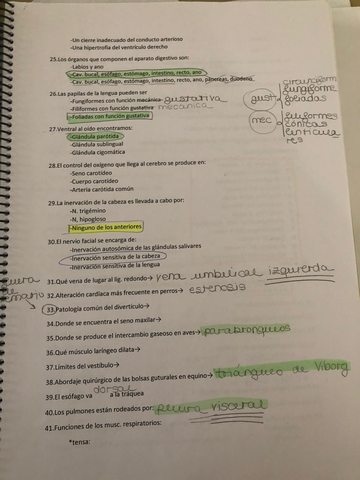 -Un cierre inadecuado del conducto arterioso
-Una hipertrofia del ventrículo derecho
25.Los órganos que componen el aparato digestivo son:
-Labios y ano
-Cav. bucal, esófago, estómago, intestino, recto, ano
-Cav. bucal, esófago, estómago, intestino, recto, ano, páncreas, duodeno
26.Las papilas de la lengua pueden ser
-Fungiformes con función mecánica gustativa
-Filiformes con función gustativa mecanica
-Foliadas con función gustativa
gust
fungiformes
foliadas
mec
filiformes
cónicas
lenticula
res
27.Ventral al oído encontramos:
-Glándula parótida
-Glándula sublingual
-Glándula cigomática
28.El control del oxígeno que llega al cerebro se produce en:
-Seno carotídeo
-Cuerpo carotídeo
-Arteria carótida común
29.La inervación de la cabeza es llevada a cabo por:
-N. trigémino
-N, hipogloso
-Ninguno de los anteriores
30.El nervio facial se encarga de:
-Inervación autosómica de las glándulas salivares
-Inervación sensitiva de la cabeza
-Inervación sensitiva de la lengua
31.Qué vena de lugar al lig. redondo→ vena umbilical izquierda
32.Alteración cardiaca más frecuente en perros→ estenosis
33.Patología común del divertículo→
34.Donde se encuentra el seno maxilar→
35.Donde se produce el intercambio gaseoso en aves→ parabronquios
36.Qué músculo laríngeo dilata→
37.Limites del vestíbulo→
38.Abordaje quirúrgico de las bolsas guturales en equino→ triángulo de Viborg
39.El esófago va dorsal a la tráquea
40.Los pulmones están rodeados por: pleura visceral
41.Funciones de los musc. respiratorios:
*tensa: